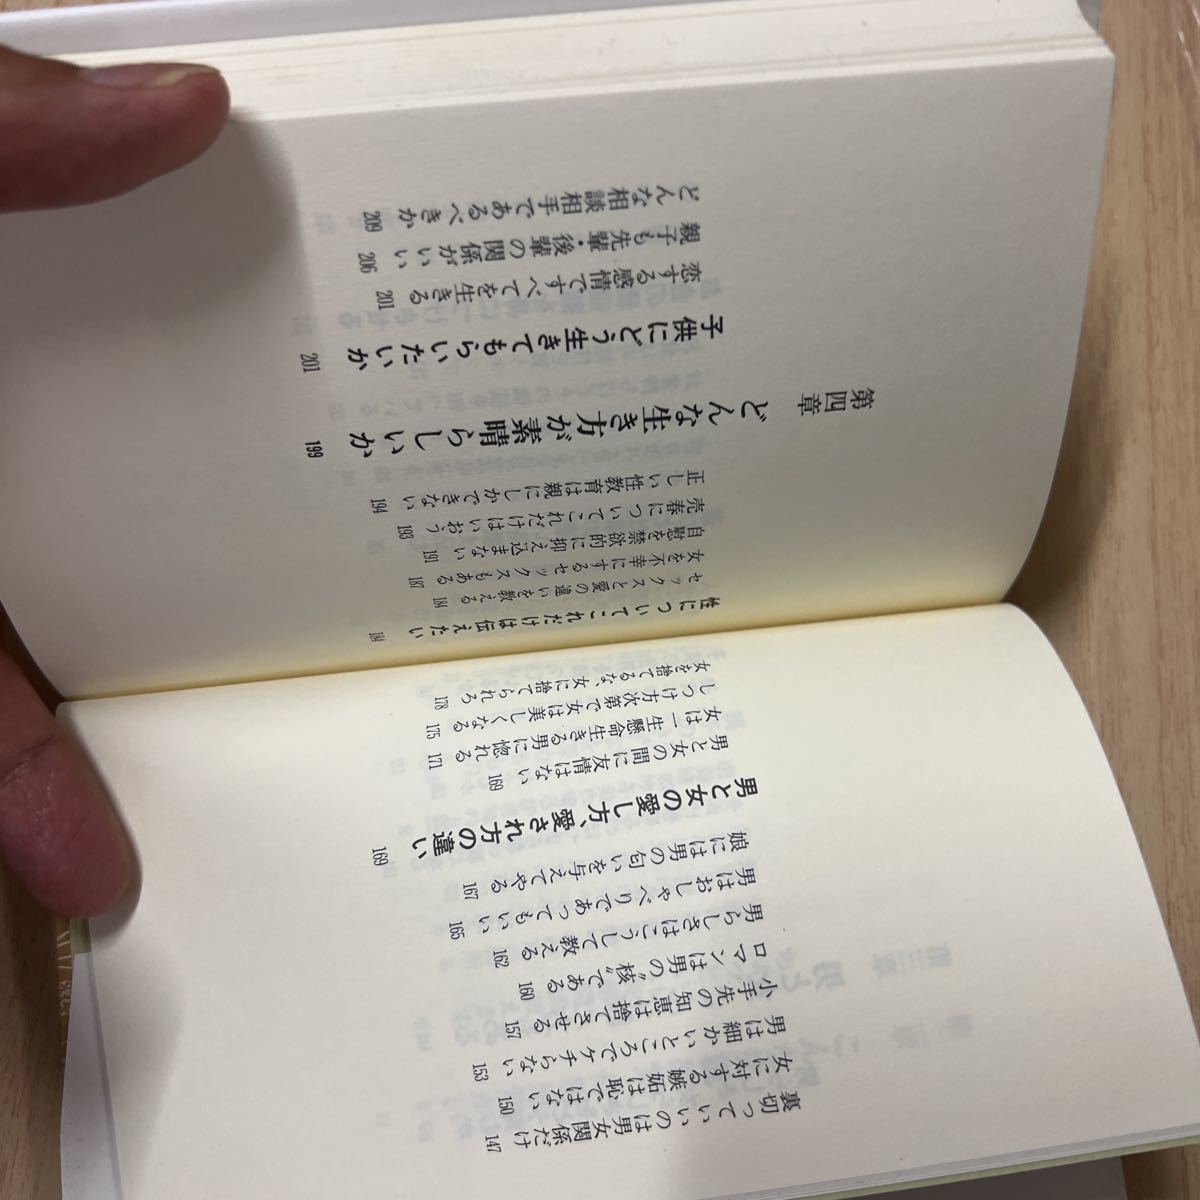 裏切っていいのは男女関係だけ 147
女に対する嫉妬は恥ではない 150
男は細かいところでケチらない 153
小手先の知恵は捨てさせる 157
ロマンは男の“核”である 160
男らしさはこうして教える 162
男はおしゃべりであってもいい 165
娘には男の匂いを与えてやる 167
男と女の愛し方、愛され方の違い 169
男と女の間に友情はない 169
女は一生懸命生きる男に惚れる 171
しつけ方次第で女は美しくなる 175
女を捨てるな、女に捨てられろ 178
性についてこれだけは伝えたい 184
セックスと愛の違いを教える 184
女を不幸にするセックスもある 187
自慰を禁欲的に抑え込まない 191
売春についてこれだけはいおう 193
正しい性教育は親にしかできない 194
第四章 どんな生き方が素晴らしいか 199
子供にどう生きてもらいたいか 201
恋する感情ですべてを生きる 201
親子も先輩・後輩の関係がいい 206
どんな相談相手であるべきか 209